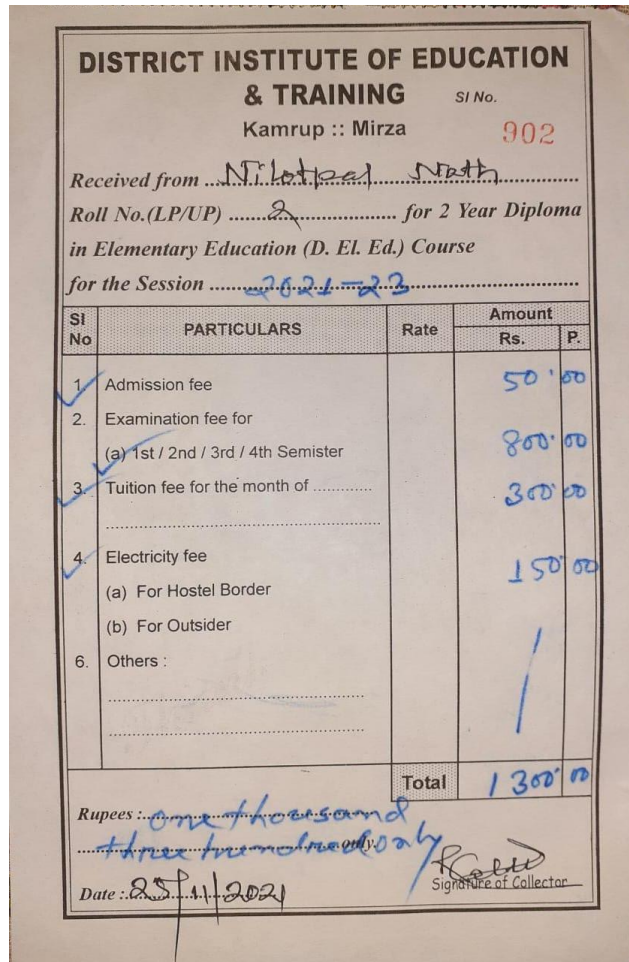 DISTRICT INSTITUTE OF EDUCATION
& TRAINING SI No.
Kamrup :: Mirza 902
Received from Nilotpal Nath
Roll No.(LP/UP) 2 for 2 Year Diploma
in Elementary Education (D. El. Ed.) Course
for the Session 2021-23
SI No PARTICULARS Rate Amount
Rs. P.
1. Admission fee 50.00
2. Examination fee for
(a) 1st / 2nd / 3rd / 4th Semister 800.00
3. Tuition fee for the month of ............. 300.00
4. Electricity fee 150.00
(a) For Hostel Border
(b) For Outsider
6. Others :
Total 1300.00
Rupees : one thousand
three hundred only only.
Signature of Collector
Date : 25/11/2021